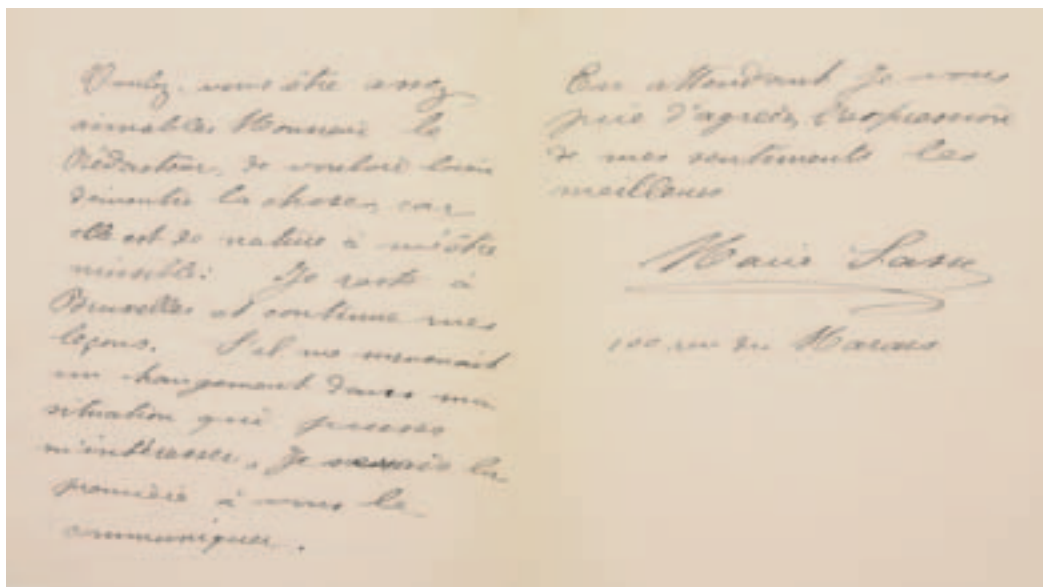 Voulez-vous être assez
aimables Monsieur le
Rédacteur, de vouloir bien
démentir la chose, car
elle est de nature à m'être
nuisible. Je reste à
Bruxelles et continue mes
leçons. S'il me survenait
un changement dans ma
situation qui puisse
m'intéresser, je serais la
première à vous le
communiquer.
En attendant je vous
prie d'agréer, l'expression
de mes sentiments les
meilleurs
Marie Sasse
100, rue du Marais